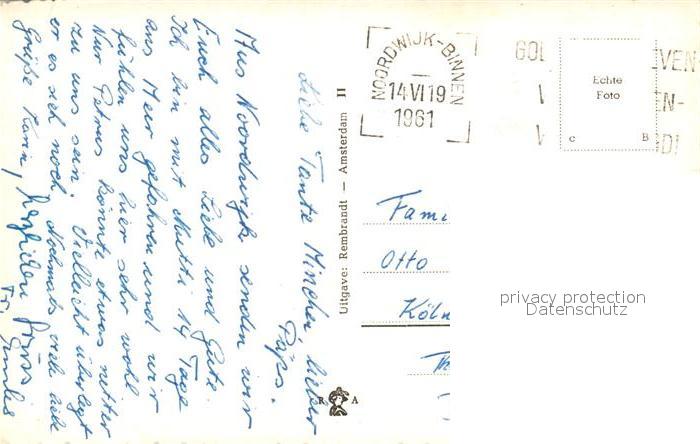 Liebe Tante Minchen, lieber
Paps.
Aus Noordwijk senden wir
Euch alles Liebe und Gute.
Ich bin mit Mutti 14 Tage
ans Meer gefahren und wir
fühlen uns hier sehr wohl.
Nur Petrus könnte etwas netter
zu uns sein. Vielleicht überlegt
er es sich noch. Nochmals viele liebe
Grüße Karin,
herzlichen Gruss
Uitgave: Rembrandt — Amsterdam II
NOORDWIJK-BINNEN
14 VI 19
1961
GOL VEN-
EN-
Echte
Foto
C B
Fami
Otto
Köln
R A
privacy protection
Datenschutz